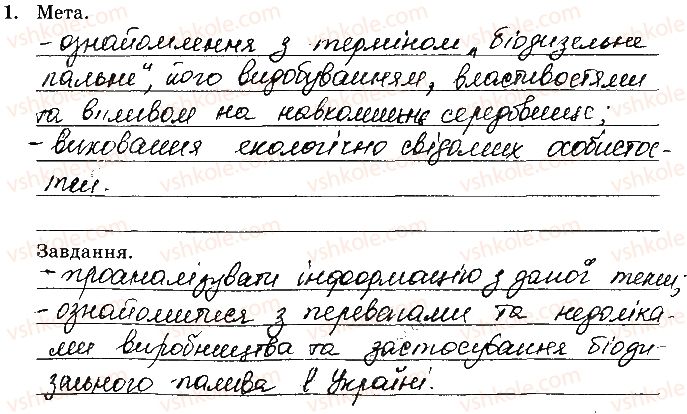 1. Мета.
- ознайомлення з терміном „біодизельне
пальне“, його видобуванням, властивостями
та впливом на навколишнє середовище;
- виховання екологічно свідомих особистос-
тей.
Завдання.
- проаналізувати інформацію з даної теми;
- ознайомитися з перевагами та недоліка-
ми виробництва та застосування біоди-
зельного палива в Україні.